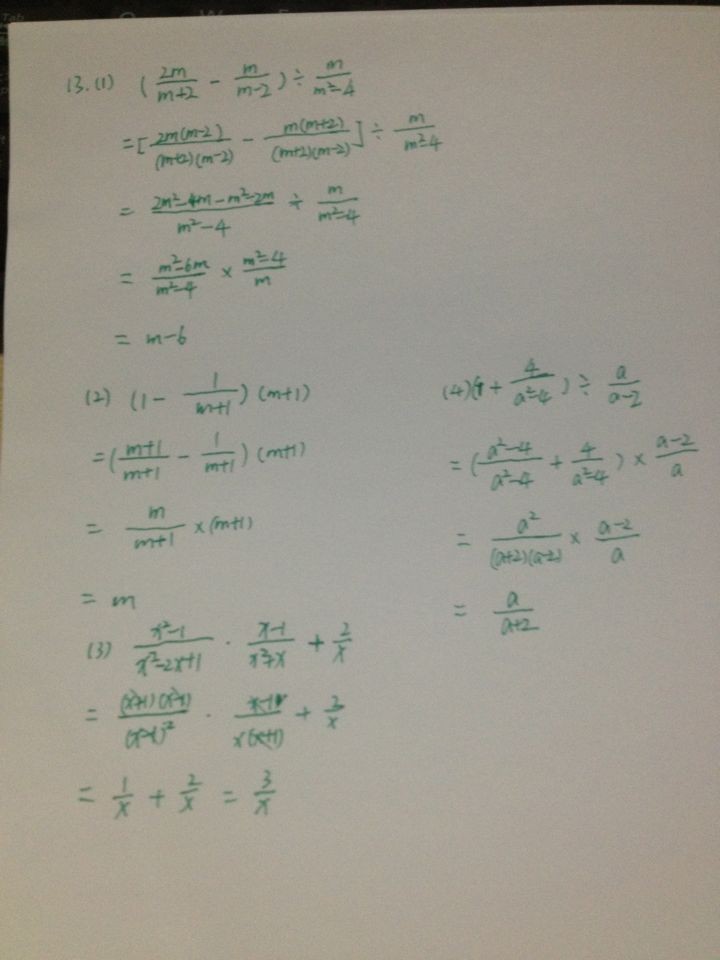 13.(1) (2m/(m+2) - m/(m-2)) ÷ m/(m²-4)
=[2m(m-2)/((m+2)(m-2)) - m(m+2)/((m+2)(m-2))] ÷ m/(m²-4)
= (2m²-4m-m²-2m)/(m²-4) ÷ m/(m²-4)
= (m²-6m)/(m²-4) × (m²-4)/m
= m-6
(2) (1- 1/(m+1)) (m+1)
=((m+1)/(m+1) - 1/(m+1)) (m+1)
= m/(m+1) ×(m+1)
= m
(3) (x²-1)/(x²-2x+1) · (x-1)/(x²+x) + 2/x
= (x+1)(x-1)/(x-1)² · (x-1)/(x(x+1)) + 2/x
= 1/x + 2/x = 3/x
(4)(1+ 4/(a²-4)) ÷ a/(a-2)
=((a²-4)/(a²-4) + 4/(a²-4)) × (a-2)/a
= a²/((a+2)(a-2)) × (a-2)/a
= a/(a+2)